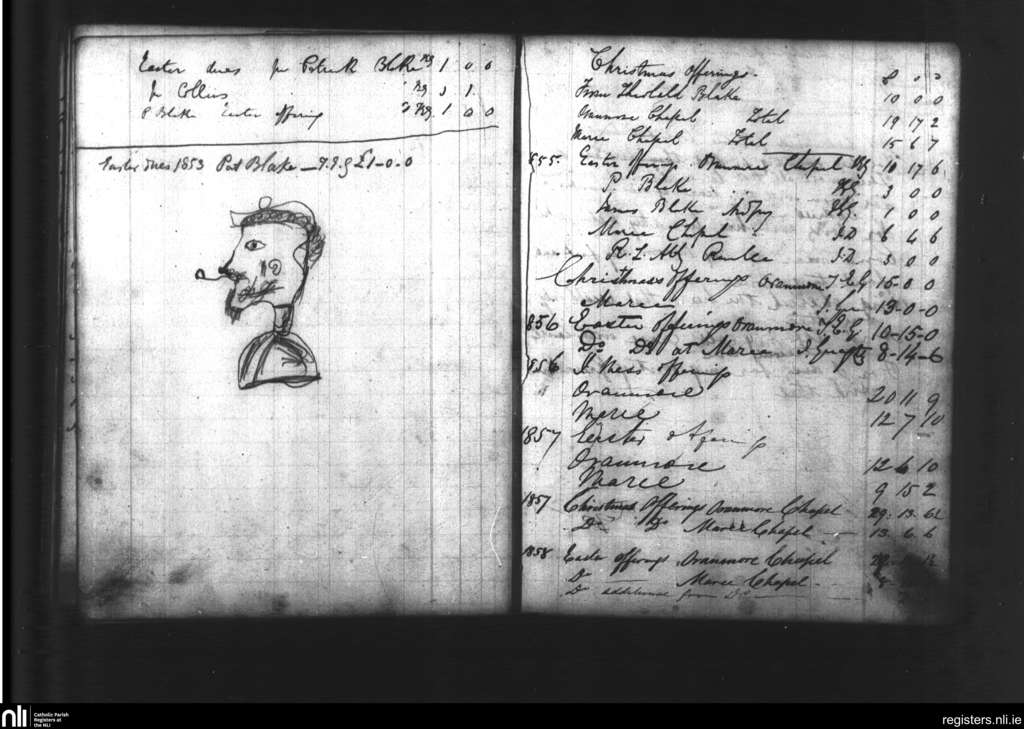 Easter dues for Patrick Blake 1 0 0
J Collins
P Blake Easter offering 1 0 0
Easter dues 1853 Pat Blake — £1-0-0
Christmas offerings.
From Blake 10 0 0
Oranmore Chapel Total 19 17 2
Maree Chapel Total 15 6 7
855. Easter offerings Oranmore Chapel 10 17 6
P. Blake 3 0 0
James Blake 1 0 0
Maree Chapel J.D 6 4 6
J.D. 3 0 0
Christmas Offerings Oranmore 15-0-0
Maree 13-0-0
856 Easter Offerings Oranmore 10-15-0
Do Do at Maree 8-14-6
856 offerings
Oranmore 20 11 9
Maree 12 7 10
1857 Easter offerings
Oranmore 12 6 10
Maree 9 15 2
1857 Christmas Offerings Oranmore Chapel 29. 13.
Do Do Maree Chapel 13 6 6
1858 Easter offerings Oranmore Chapel
Do Maree Chapel
Do additional from Do
nli
Catholic Parish
Registers at
the NLI
registers.nli.ie